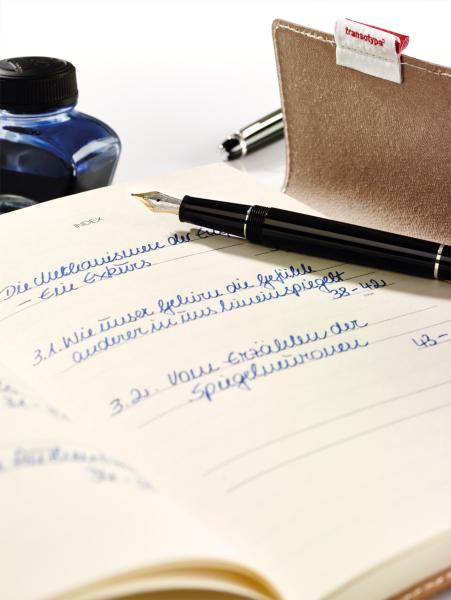 transotype
INDEX
Die Mechanismen der
- Ein Exkurs
3.1. Wie unser Gehirn die Gefühle
anderer in uns hineinspiegelt
38-42
3.2. Vom Erzählen der
Spiegelneuronen
43-